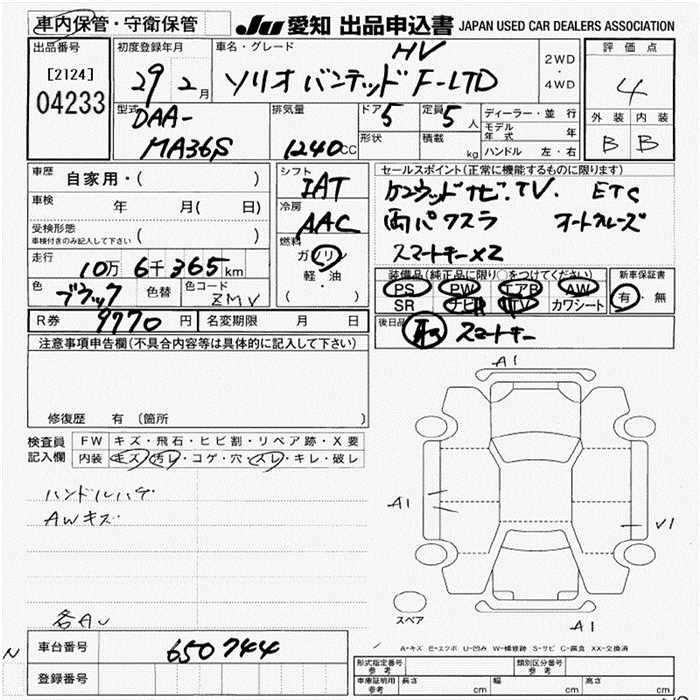 車内保管・守衛保管 JU 愛知 出品申込書 JAPAN USED CAR DEALERS ASSOCIATION
出品番号 初度登録年月 車名・グレード HV 2WD ・ 4WD 評価点
[2124] 04233 29 2月 ソリオ バンデッド F-LTD 4
型式 DAA-MA36S 排気量 1240cc ドア 5 定員 5人 ディーラー・並行 外装 内装
形状 積載 kg モデル年式 年 B B
ハンドル 左・右
車歴 自家用・( ) シフト IAT セールスポイント(正常に機能するものに限ります)
車検 年 月( 日) 冷房 AAC ケンウッドナビ.TV. ETC
受検形態 車検付きのみ記入して下さい ( ) 燃料 ガソリン 軽・油 ( ) 両パワスラ オートクルーズ
走行 10万 6千365km スマートキー×2
色 ブラック 色替 色コード ZMV 装備品(純正品に限り○をつけてください) 新車保証書
PS PW エアB AW 有・無
SR ナビR TV カワシート
R券 9770円 名変期限 月 日 後日品 スマートキー
注意事項申告欄(不具合内容等は具体的に記入して下さい)
修復歴 有 (箇所 )
検査員記入欄 FW キズ・飛石・ヒビ割・リペア跡・X要
内装 キズ・汚レ・コゲ・穴・スレ・キレ・破レ
ハンドルハゲ
AWキズ
A1
A1
V1
A1
スペア
各AU
A-キズ E-エクボ U-凹み W-補修跡 S-サビ C-腐食 XX-交換済
N 車台番号 650744
登録番号
形式指定番号 参考 類別区分番号 参考
車庫証明用 参考 長さ cm 幅 cm 高さ cm